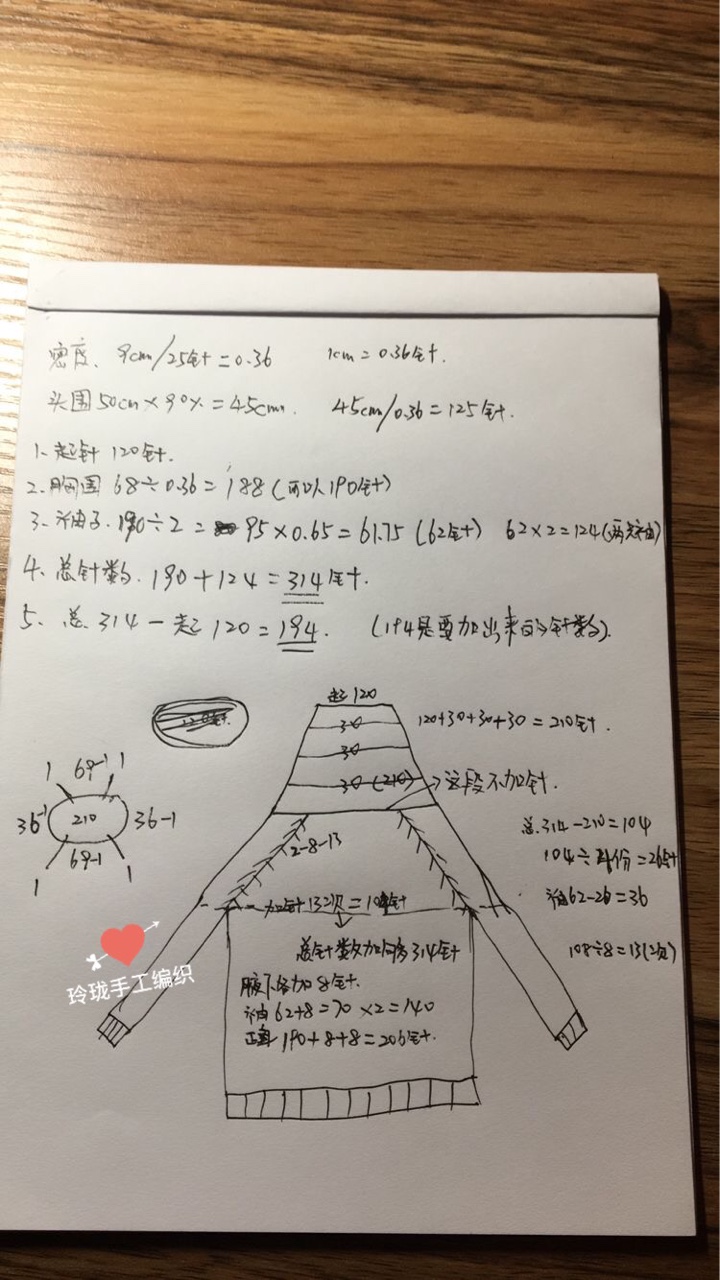 密度、9cm/25针=0.36 1cm=0.36针.
头围50cm×90%=45cm. 45cm/0.36=125针.
1、起针120针.
2、胸围68÷0.36=188(可以190针)
3、袖子.190÷2=95×0.65=61.75(62针) 62×2=124(两只袖)
4、总针数.190+124=314针.
5、总.314-起120=194. (194是要加出来的针数).
起120
30
30
30(210)
120+30+30+30=210针.
这段不加针.
1 69-1 1
36-1 210 36-1
69-1
1 1
2-8-13
总.314-210=104
104÷4份=26针
袖62-26=36
108÷8=13(次)
加针13次=104针
总针数加向为314针
腋下各加8针.
袖62+8=70×2=140
正身190+8+8=206针.
玲珑手工编织